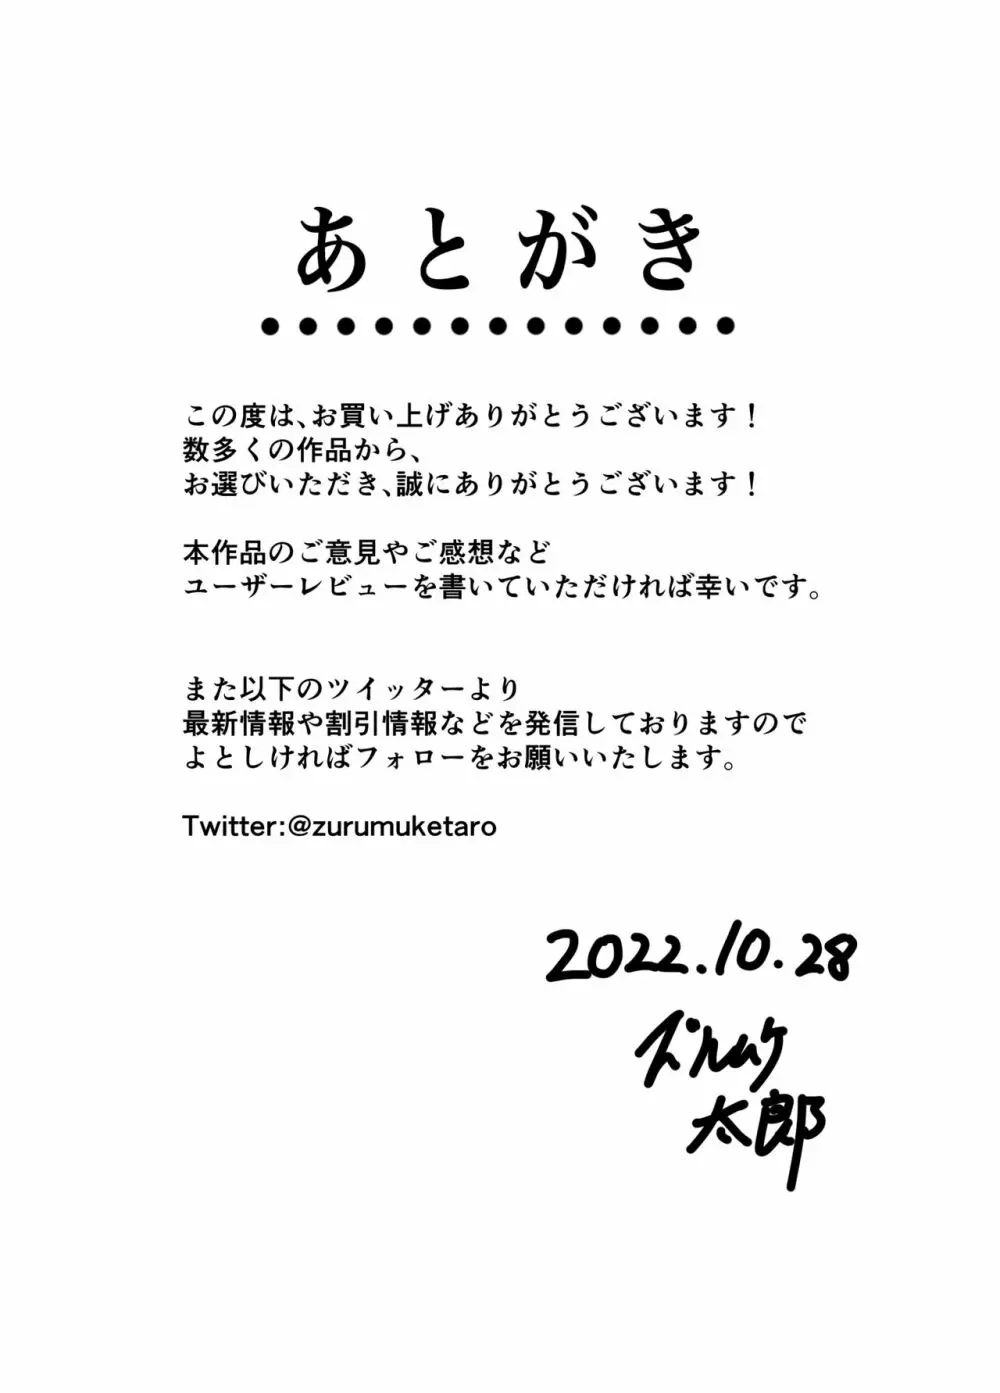 あとがき
この度は､お買い上げありがとうございます！
数多くの作品から、
お選びいただき､誠にありがとうございます！
本作品のご意見やご感想など
ユーザーレビューを書いていただければ幸いです。
また以下のツイッターより
最新情報や割引情報などを発信しておりますので
よとしければフォローをお願いいたします。
Twitter:@zurumuketaro
2022.10.28
ズルムケ
太郎